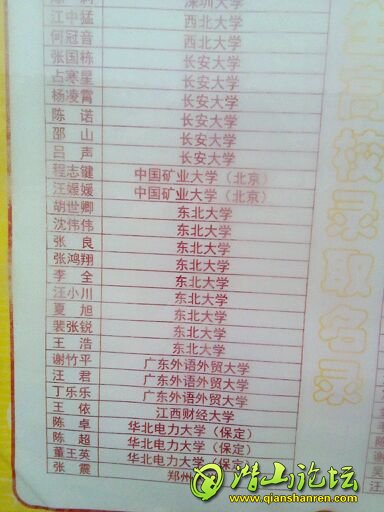 深圳大学
江中猛 西北大学
何冠音 西北大学
张国栋 长安大学
占寒星 长安大学
杨凌霄 长安大学
陈 诺 长安大学
邵 山 长安大学
吕 声 长安大学
程志健 中国矿业大学（北京）
汪媛媛 中国矿业大学（北京）
胡世卿 东北大学
沈伟伟 东北大学
张 良 东北大学
张鸿翔 东北大学
李 全 东北大学
汪小川 东北大学
夏 旭 东北大学
裴张锐 东北大学
王 浩 东北大学
谢竹平 广东外语外贸大学
汪 君 广东外语外贸大学
丁乐乐 广东外语外贸大学
王 依 江西财经大学
陈 卓 华北电力大学（保定）
陈 超 华北电力大学（保定）
董王英 华北电力大学（保定）
张 震 郑州
高校录取名录
潜山论坛
www.qianshanren.com